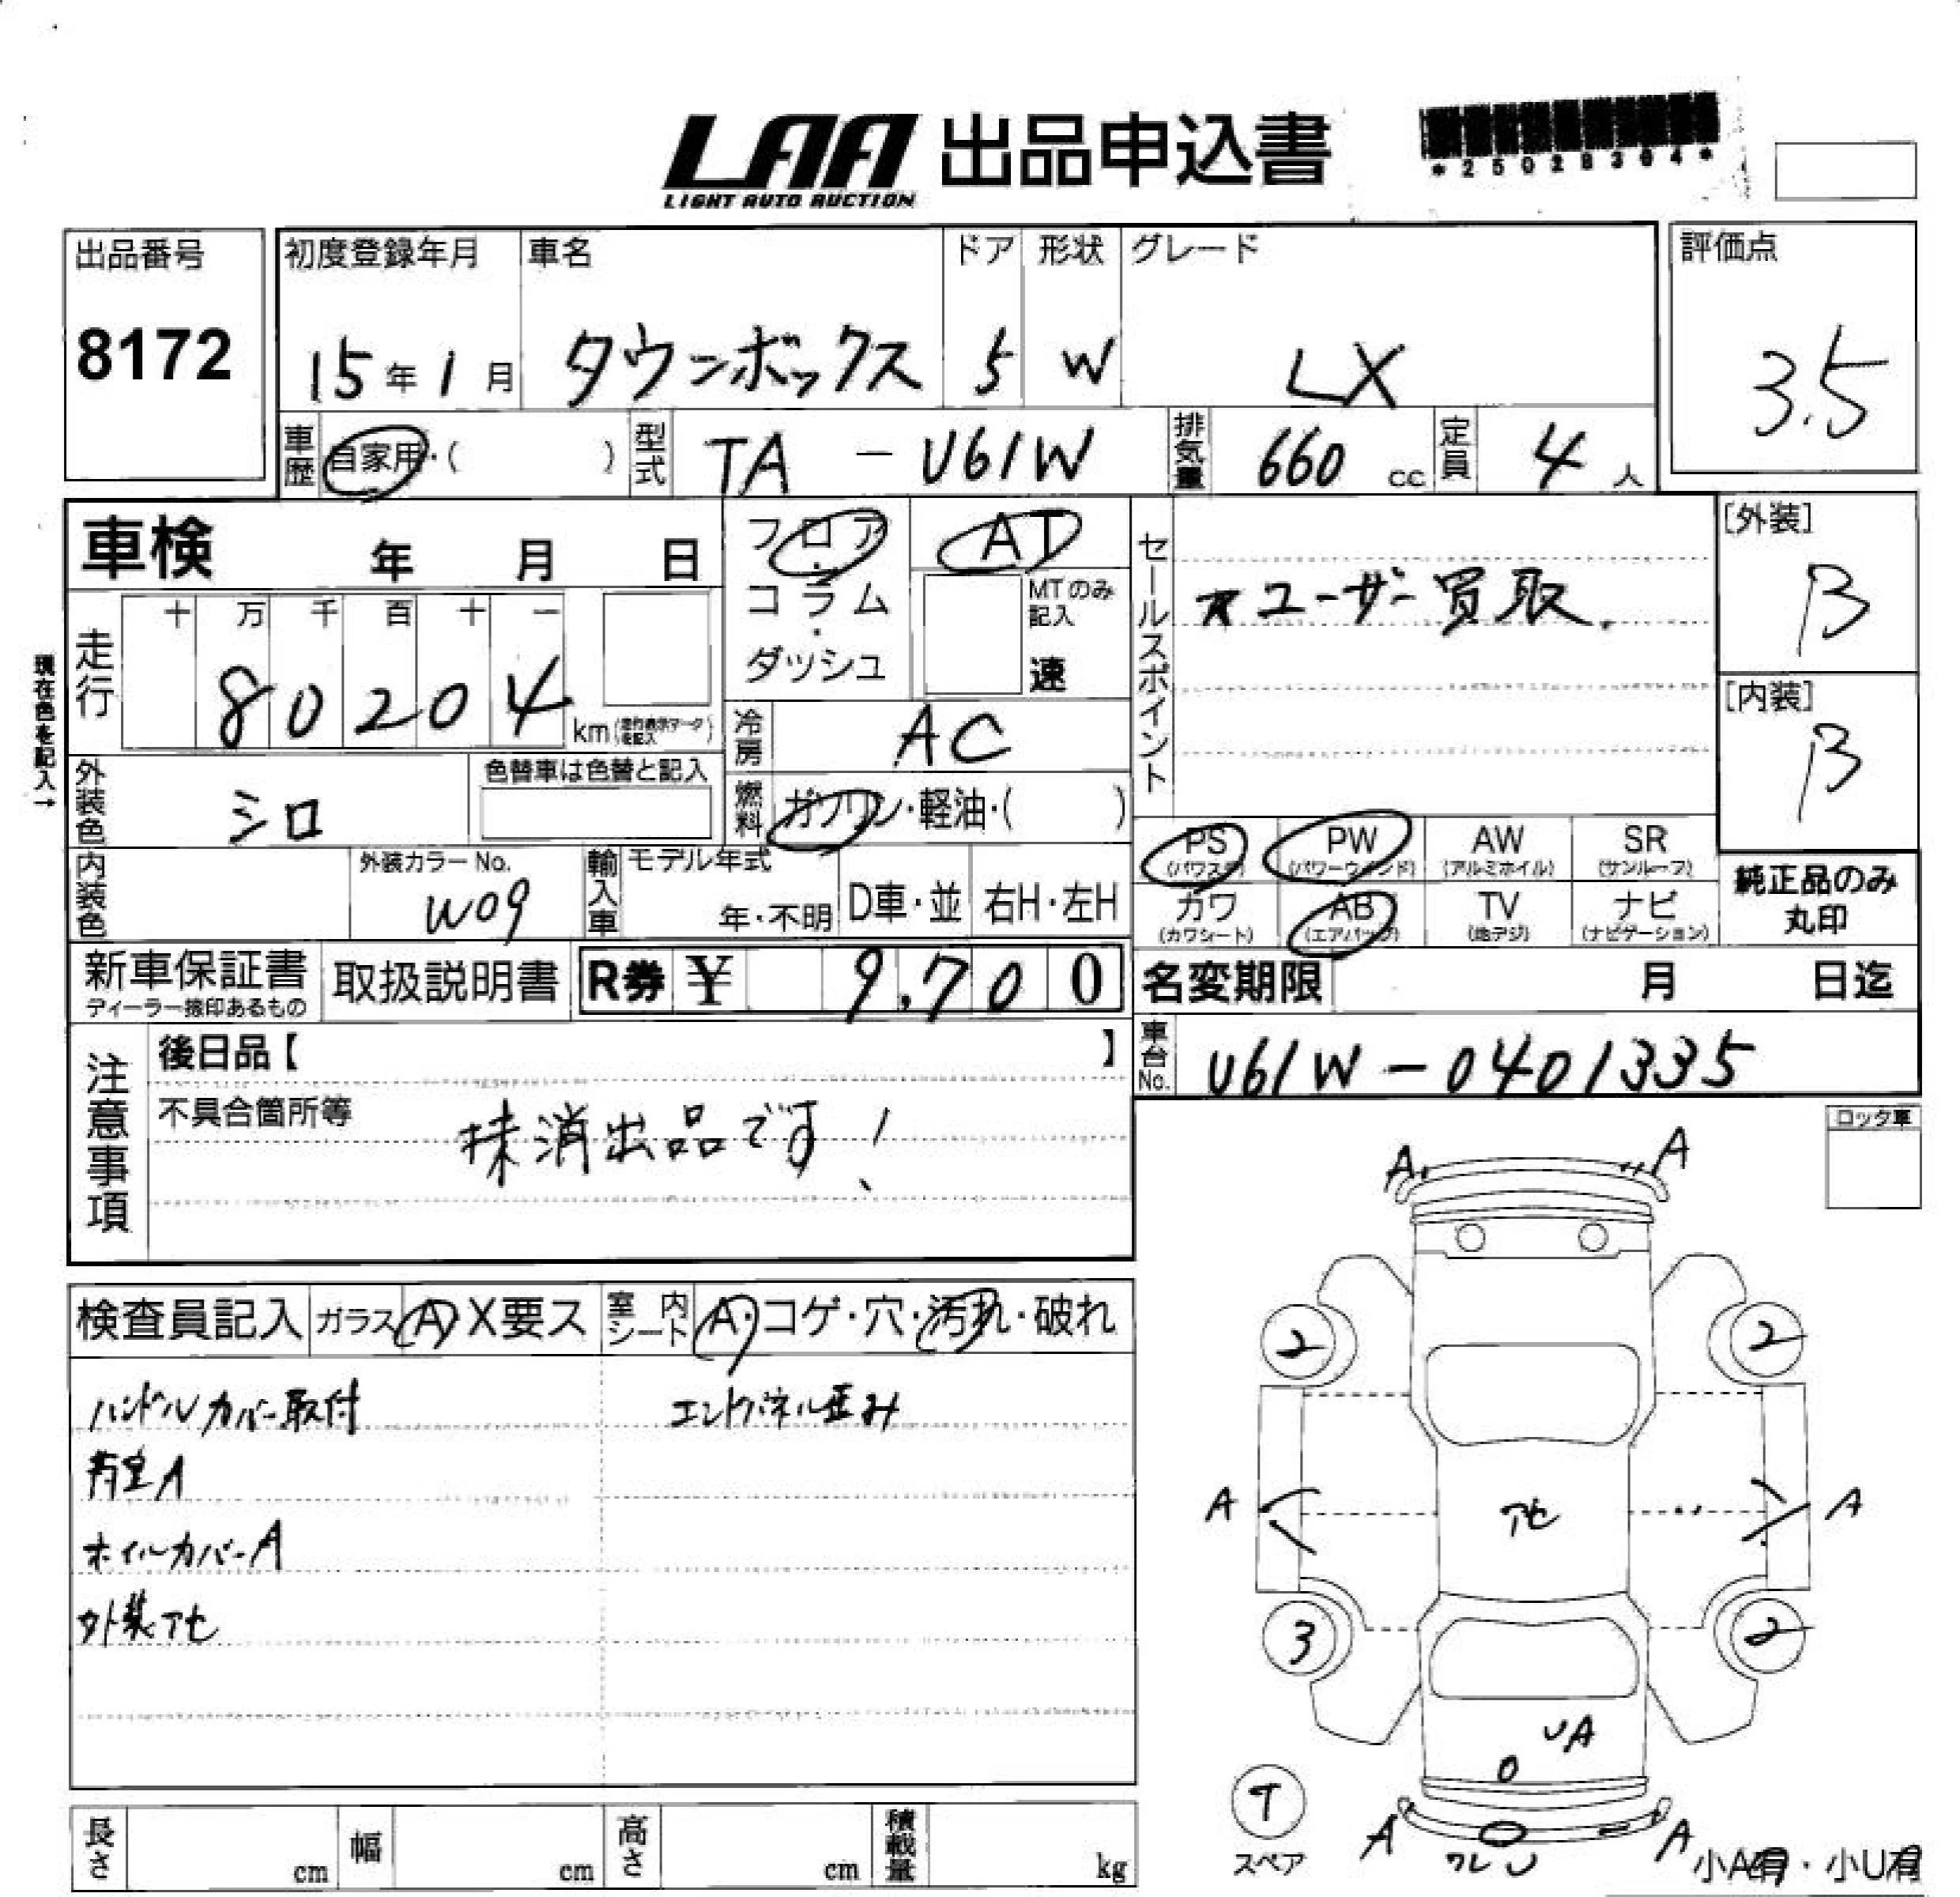 LAA 出品申込書
LIGHT AUTO AUCTION
*25028304*
出品番号
8172
初度登録年月 車名 ドア 形状 グレード
15年1月 タウンボックス 5 W LX
評価点
3.5
車歴 自家用・( ) 型式 TA-U61W 排気量 660 cc 定員 4 人
車検 年 月 日
フロア・コラム・ダッシュ
AT
MTのみ記入
速
セールスポイント
★ユーザー買取.
[外装]
B
[内装]
B
現在色を記入→
走行 十 万 千 百 十 一
80204 km
冷房 AC
外装色 シロ 色替車は色替と記入
燃料 ガソリン・軽油・( )
PS (パワステ) PW (パワーウインド) AW (アルミホイル) SR (サンルーフ)
カワ (カワシート) AB (エアバッグ) TV (地デジ) ナビ (ナビゲーション)
純正品のみ
丸印
内装色 外装カラーNo. W09
輸入車 モデル年式 年・不明 D車・並 右H・左H
新車保証書 ディーラー捺印あるもの 取扱説明書 R券 ¥ 9,700
名変期限 月 日迄
車台No. U61W-0401335
注意事項
後日品【 】
不具合箇所等
抹消出品です!
ロッタ車
検査員記入 ガラス A X要ス 室内シート A・コゲ・穴・汚れ・破れ
ハンドルカバー取付 エンドパネル歪み
荷室A
ホイルカバーA
外装アセ
A A
2 2
A アセ A
3 2
UA
O
T
スペア
A A
ワレ U
小A有・小U有
長さ cm 幅 cm 高さ cm 積載量 kg